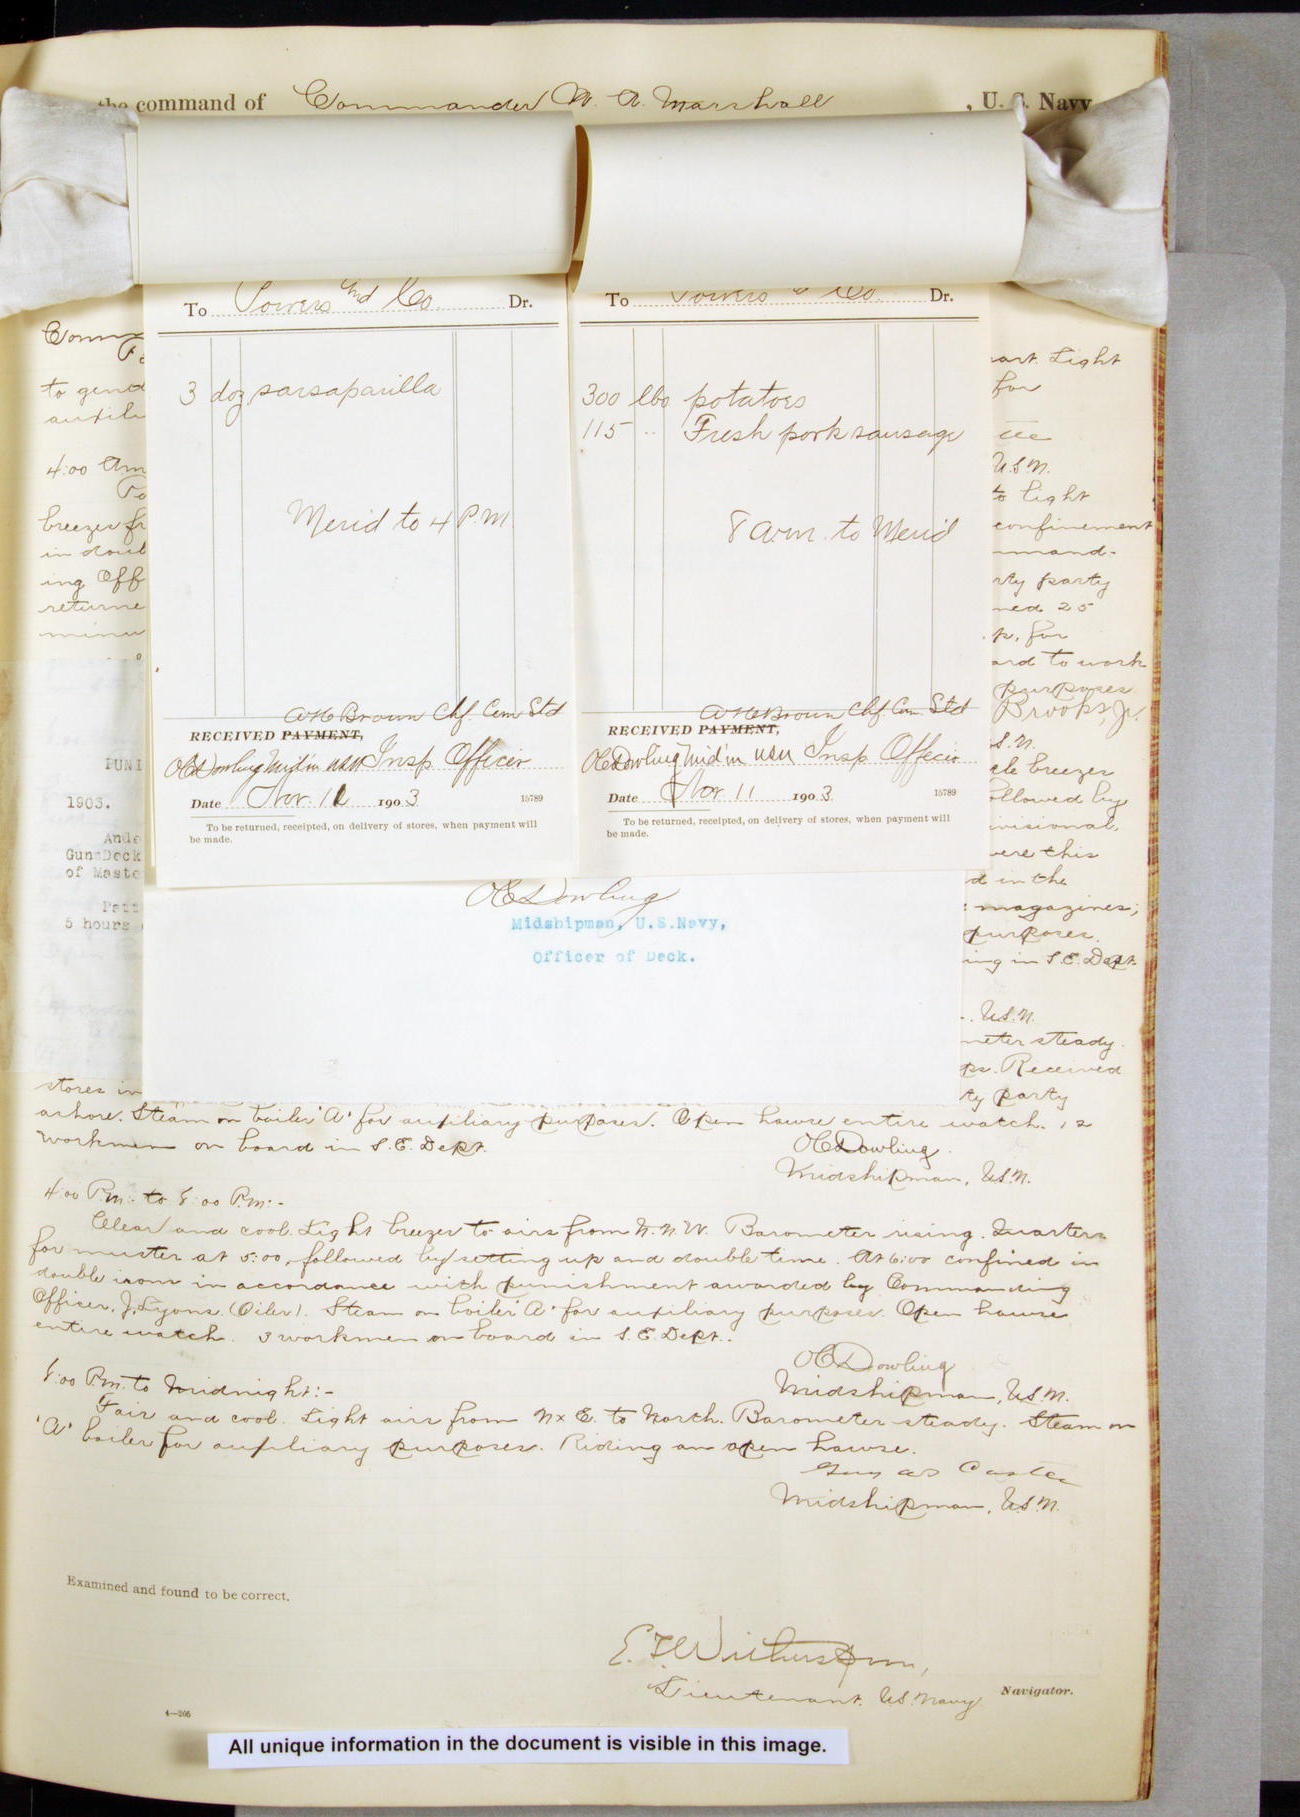 the command of Commander W. A. Marshall, U. S. Navy
To Powers and Co. Dr.
3 doz sarsaparilla
Merid to 4 P.M
A H Brown Chf. Com Std
RECEIVED PAYMENT,
O C Dowling Mid'n USN Insp Officer
Date Nov. 11 1903 15789
To be returned, receipted, on delivery of stores, when payment will
be made.
To Powers & Co. Dr.
300 lbs potatoes
115 " Fresh pork sausage
8 a.m. to Merid
A H Brown Chf. Com. Std
RECEIVED PAYMENT,
O C Dowling Mid'n USN Insp Officer
Date Nov 11 1903 15789
To be returned, receipted, on delivery of stores, when payment will
be made.
Comm
to gend
auxili
4:00 Am
breezes fr
in doub
ing Off
returne
minu
PUNI
1903.
Ande
Gun Deck
of Maste
Patt
5 hours
Light
for
U.S.N.
to light
confinement
mmand-
rty party
ned 25
p. for
ard to work
purposes
Brooks, Jr.
S. N.
tle breezes
ollowed by
ivisional,
were this
d in the
magazines;
purposes.
ing in S.E. Dept.
U.S.N.
meter steady.
ps. Received
ty party
O C Dowling
Midshipman, U.S.Navy,
Officer of Deck.
stores in
ashore. Steam on boiler 'A' for auxiliary purposes. Open hawse entire watch. 12
workmen on board in S.E. Dept.
O C Dowling
Midshipman, U.S.N.
4:00 P.M. to 8:00 P.M:-
Clear and cool. Light breezes to airs from N.N.W. Barometer rising. Quarters
for muster at 5:00, followed by setting up and double time. At 6:00 confined in
double irons in accordance with punishment awarded by Commanding
Officer, J. Lyons (Oiler). Steam on boiler 'A' for auxiliary purposes. Open hawse
entire watch. 3 workmen on board in S.E. Dept.
O C Dowling
Midshipman, U.S.N.
8:00 P.M. to Midnight:-
Fair and cool. Light airs from N x E. to North. Barometer steady. Steam on
'A' boiler for auxiliary purposes. Riding an open hawse.
Guy Castle
Midshipman, U.S.N.
Examined and found to be correct.
E. F. Witherspoon,
Lieutenant, U.S. Navy Navigator.
4—206
All unique information in the document is visible in this image.